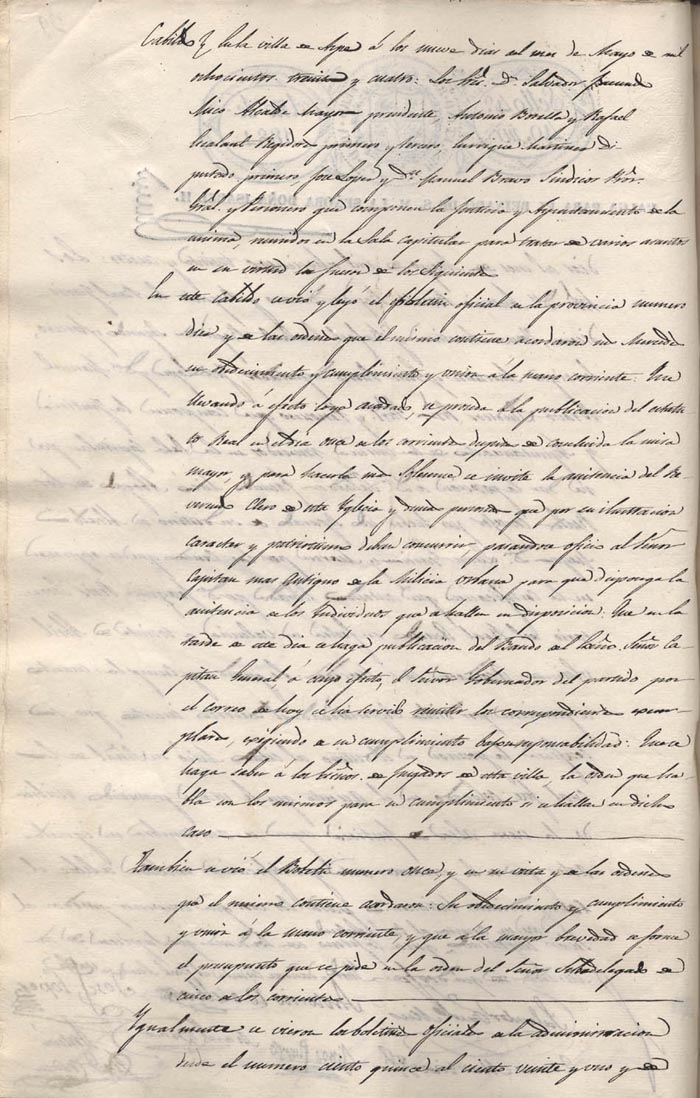 Cabildo En la villa de Aspe á los nueve dias del mes de Mayo de mil
ochocientos treinta y cuatro: Los Sres. Dn. Salvador
Mico Alcalde mayor presidente, Antonio Botella y Rafael
Regidores primero y tercero, Enrique Martinez di
putado primero, Jose Lopez y Dn. Manuel Bravo Sindicos Pror.
Gral. y Personero que componen la Justicia y Ayuntamiento de la
misma reunidos en la Sala capitular para tratar de varios asuntos
en su virtud lo fueron de los siguientes
En este Cabildo se vió y leyó el Boletin oficial de la provincia numero
diez y de las ordenes que el mismo contiene acordaron
su obedecimiento y cumplimiento y unir á la mano corriente: Que
llevando á efecto lo acordado, se proceda á la publicacion del estatu
to Real en el dia once de los corrientes despues de concluida la misa
mayor, y para hacerla mas solemne se invite la asistencia del Re
verendo Clero de esta Yglesia y demas personas que por su ilustracion
caracter y patriotismo deban concurrir, pasandose oficio al Señor
Capitan mas antiguo de la Milicia Urbana para que disponga la
asistencia de los Individuos que se hallen en disposicion: Que en la
tarde de este dia se haga publicacion del Bando del Exmo. Señor Ca
pitan General á cuyo efecto, el Señor Gobernador del partido por
el correo de hoy se ha servido remitir los correspondientes exem
plares, exigiendo de su cumplimiento bajo responsabilidad: Que se
haga saber á los de esta villa, la orden que ha
bla con los mismos para su cumplimiento si se hallan en dicho
caso
Tambien se vió el Boletin numero once, y en su vista y de las ordenes
que el mismo contiene acordaron: Su obedecimiento y cumplimiento
y unir á la mano corriente, y que á la mayor brevedad se forme
el presupuesto que se pide en la orden del Señor Subdelegado de
cinco de los corrientes
Ygualmente se vieron los boletines oficiales de la administracion
desde el numero ciento quince al ciento veinte y uno y de